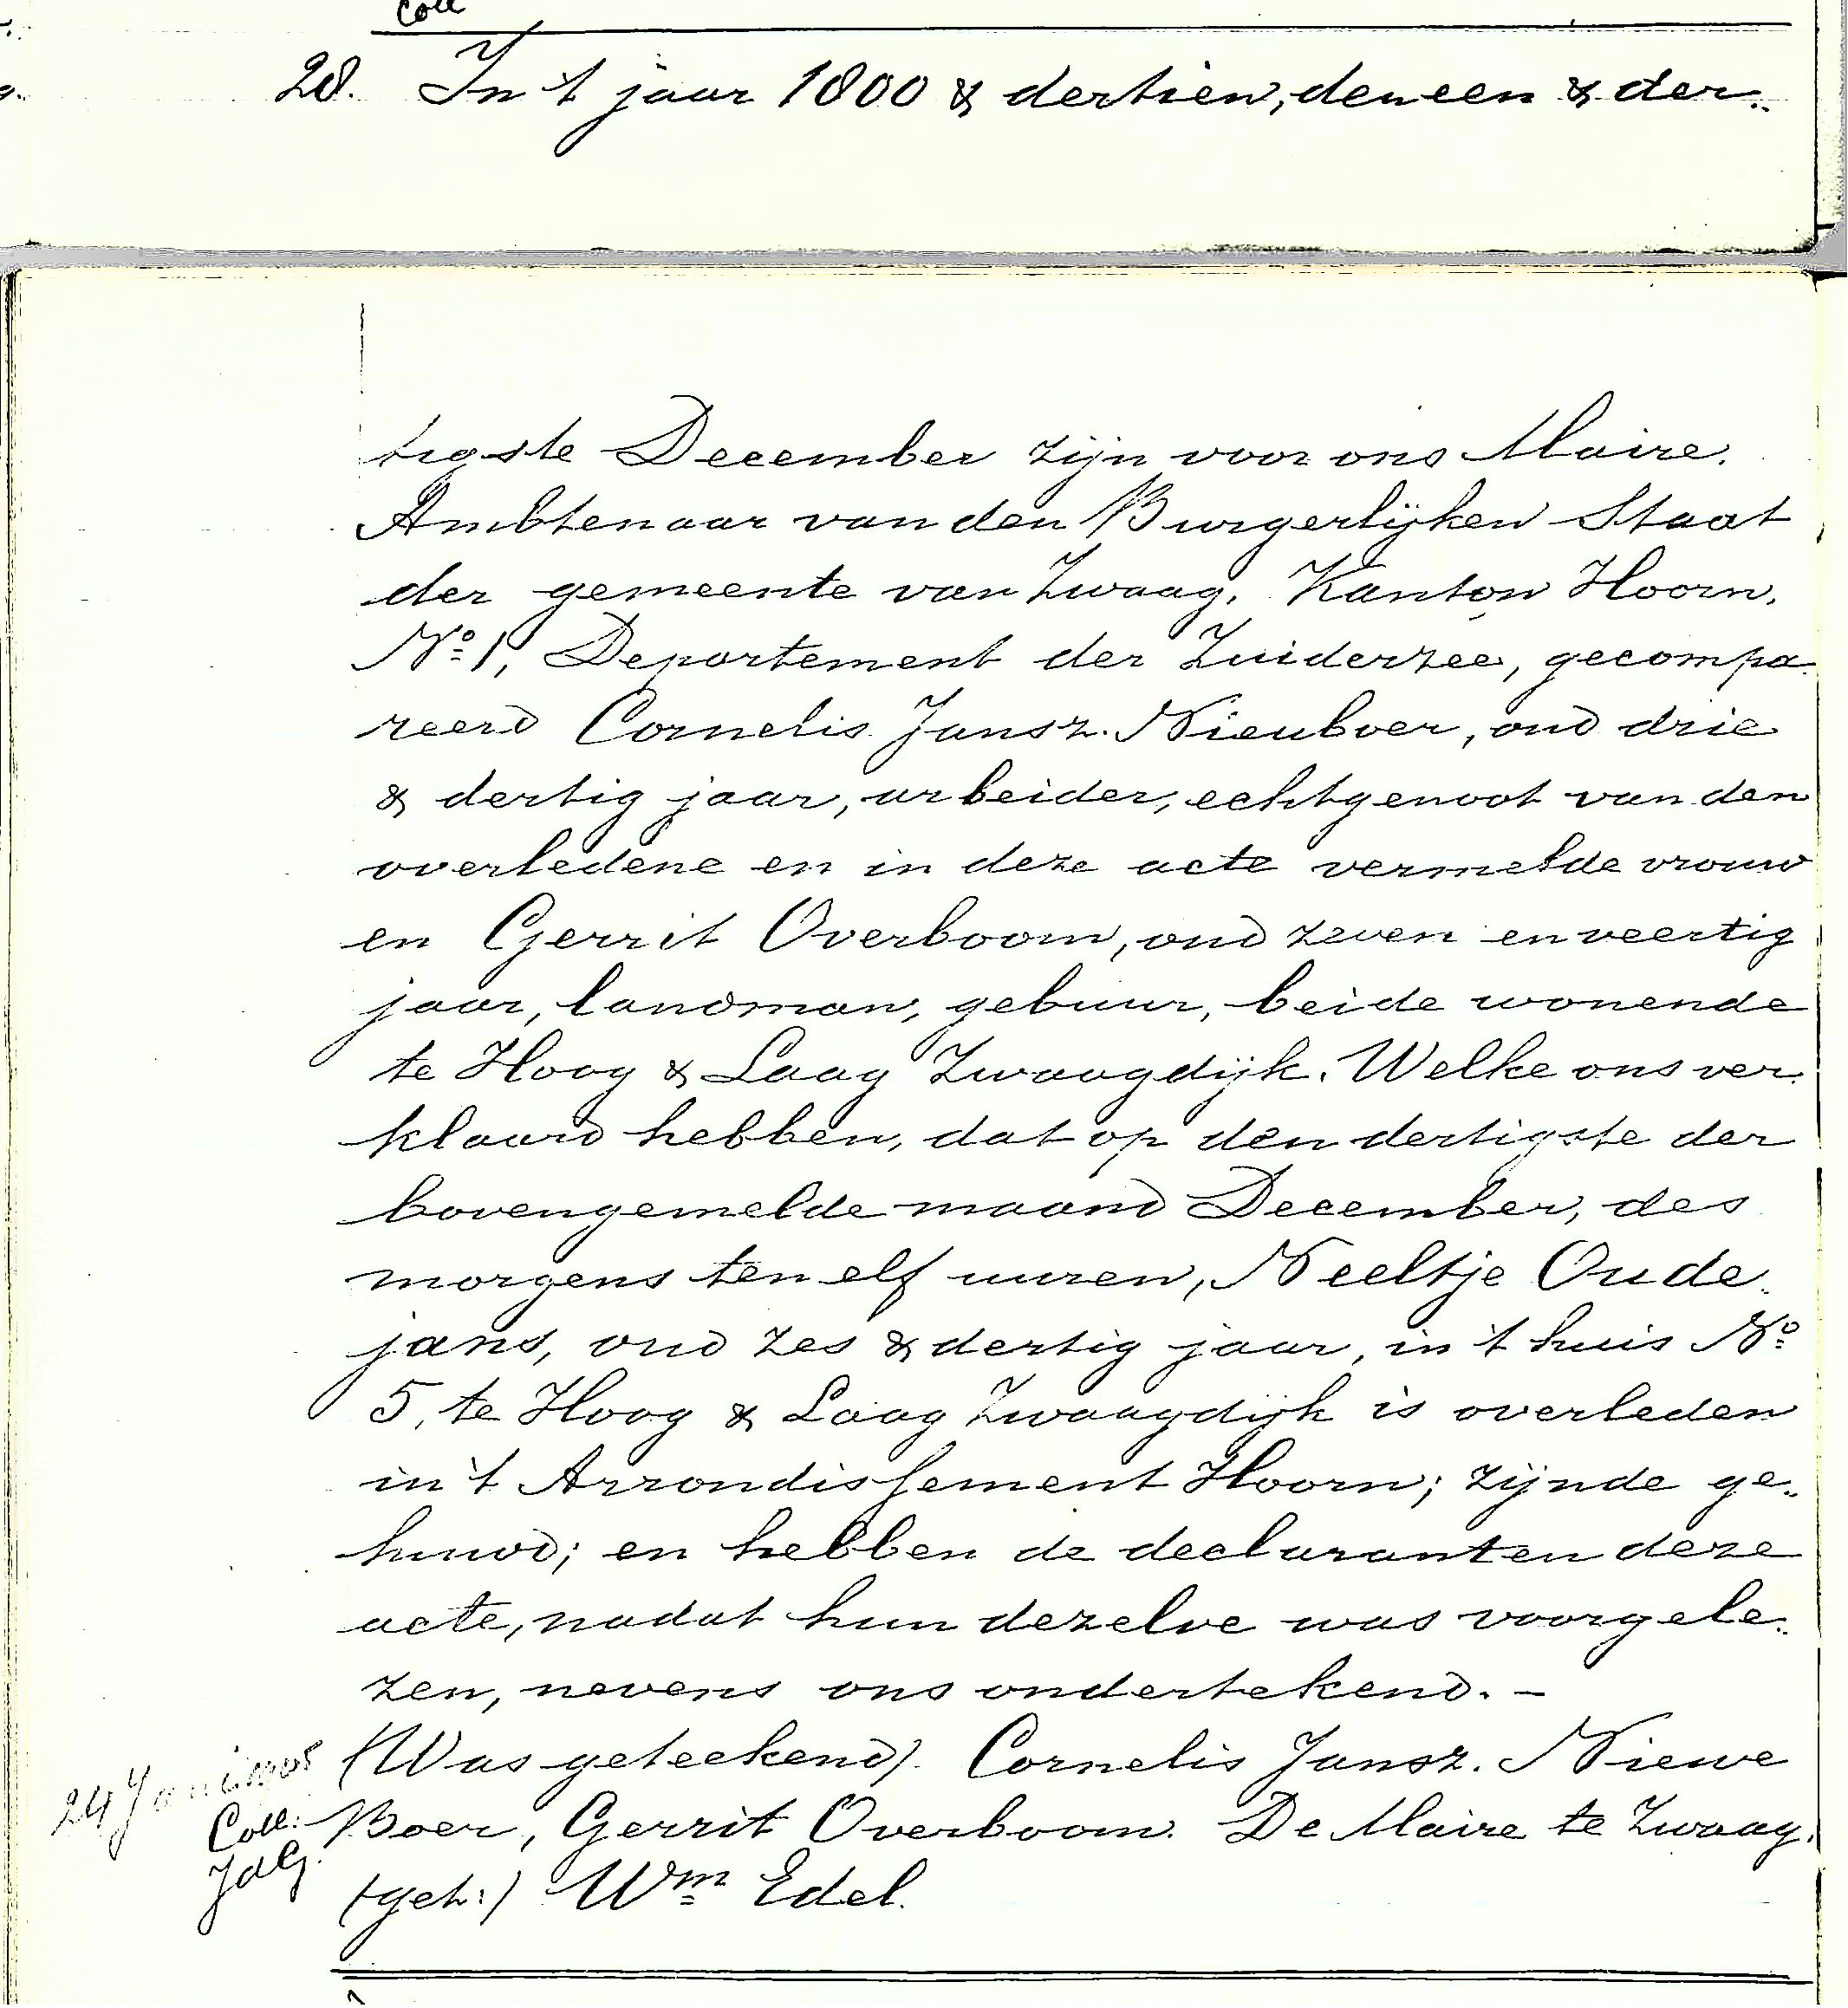 Coll
28. In 't jaar 1800 & dertien, den een & der„
tigste December zijn voor ons Maire.
Ambtenaar van den Burgerlijken Staat
der gemeente van Zwaag, Kanton Hoorn,
No 1, Departement der Zuiderzee, gecompa„
reerd Cornelis Jansz. Nieuboer, oud drie
& dertig jaar, arbeider, echtgenoot van den
overledene en in deze acte vermelde vrouw
en Gerrit Overboom, oud zeven en veertig
jaar, landman, gebuur, beide wonende
te Hoog & Laag Zwaagdijk. Welke ons ver„
klaard hebben, dat op den dertigste der
bovengemelde maand December, des
morgens ten elf uuren, Neeltje Oude„
jans, oud zes & dertig jaar, in 't huis No
5, te Hoog & Laag Zwaagdijk is overleden
in 't Arrondissement Hoorn; zijnde ge„
huwd; en hebben de declaranten deze
acte, nadat hun dezelve was voorgele„
zen, nevens ons ondertekend. –
(Was geteekend). Cornelis Jansz. Niewe
Boer, Gerrit Overboom. De Maire te Zwaag.
(get:) Wm Edel.
24 Jan
Coll:
JdG.